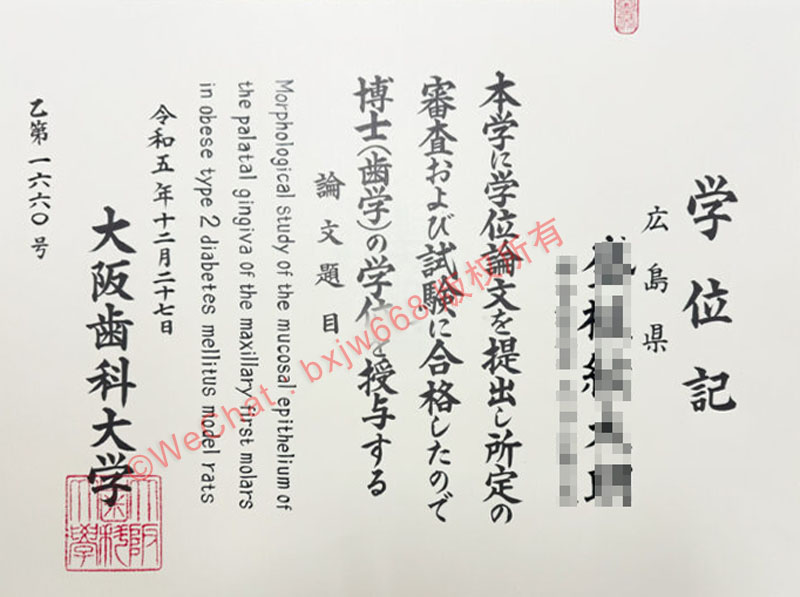 学位記
広島県
本学に学位論文を提出し所定の
審査および試験に合格したので
博士(歯学)の学位を授与する
論文題目
Morphological study of the mucosal epithelium of
the palatal gingiva of the maxillary first molars
in obese type 2 diabetes mellitus model rats
令和五年十二月二十七日
大阪歯科大学
乙第一六六〇号
©WeChat：bxjw668 版权所有